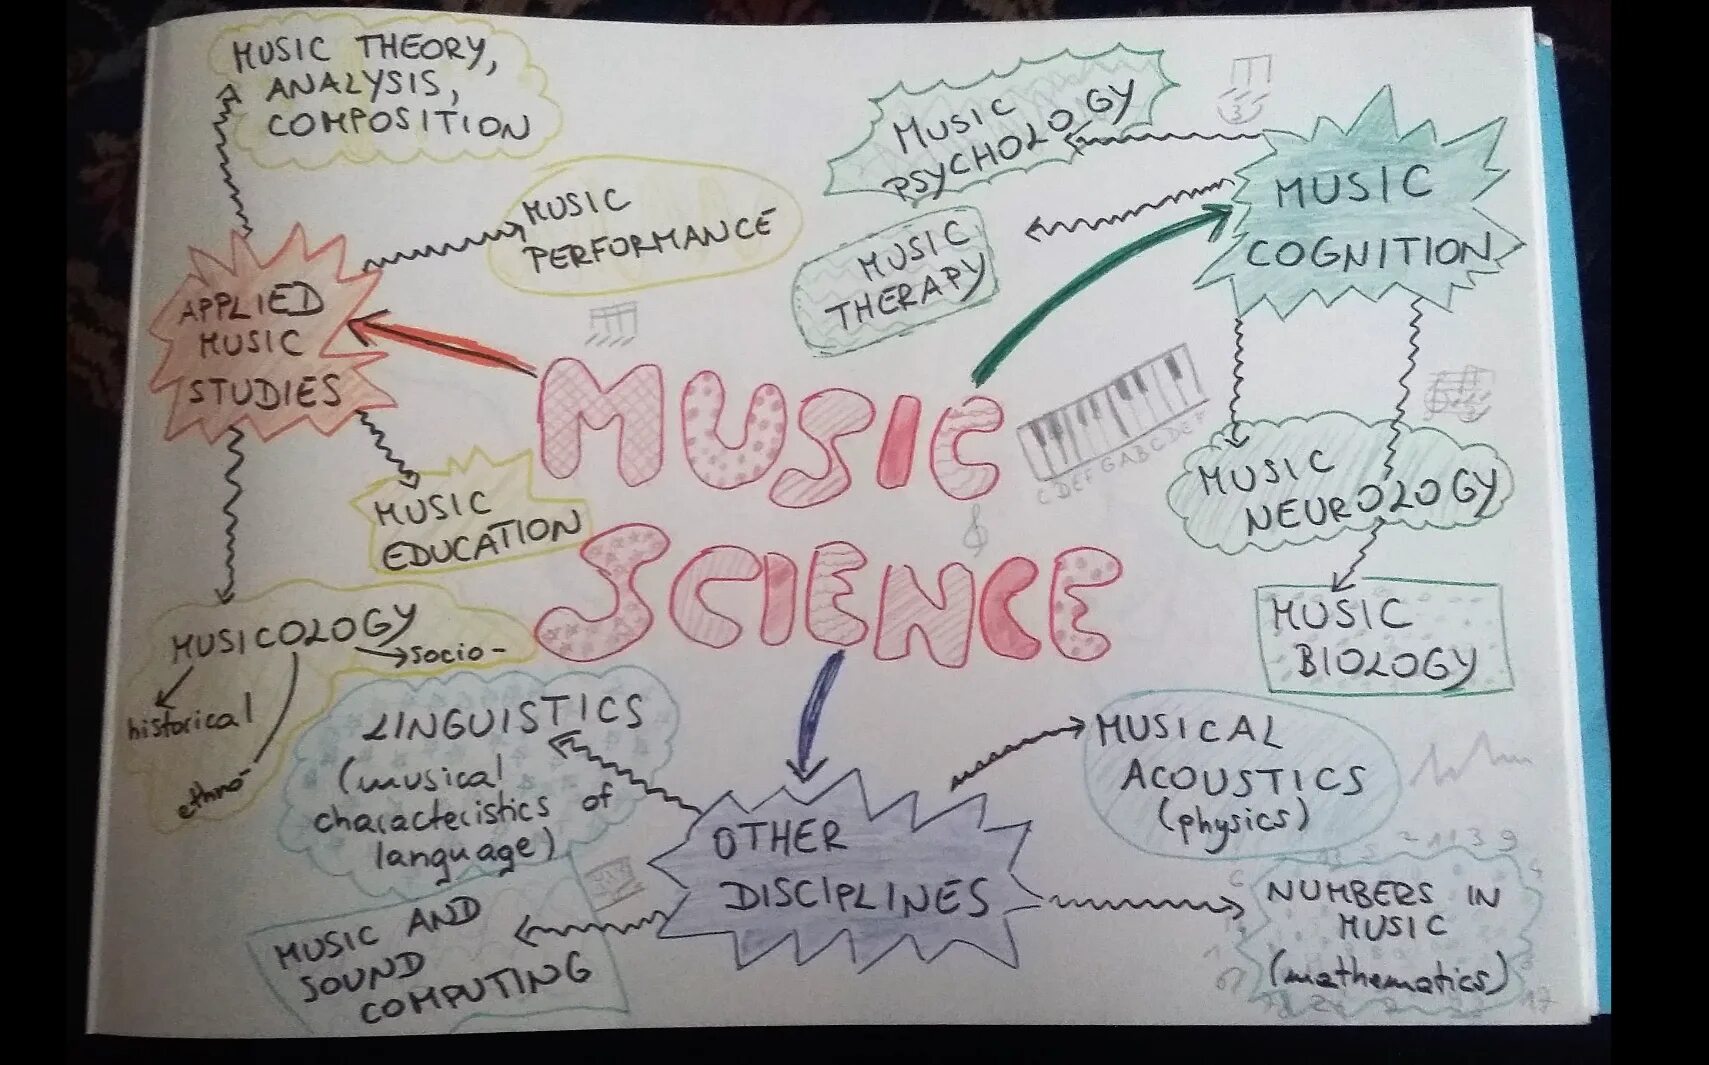 MUSIC THEORY,
ANALYSIS,
COMPOSITION
MUSIC
PERFORMANCE
APPLIED
MUSIC
STUDIES
MUSIC
EDUCATION
MUSICOLOGY
socio-
historical
ethno-
MUSIC
PSYCHOLOGY
MUSIC
THERAPY
MUSIC
COGNITION
MUSIC
NEUROLOGY
MUSIC
BIOLOGY
MUSIC
SCIENCE
CDEFGABCDEF
LINGUISTICS
(musical
characteristics of
language)
MUSIC AND
SOUND
COMPUTING
OTHER
DISCIPLINES
MUSICAL
ACOUSTICS
(physics)
NUMBERS IN
MUSIC
(mathematics)